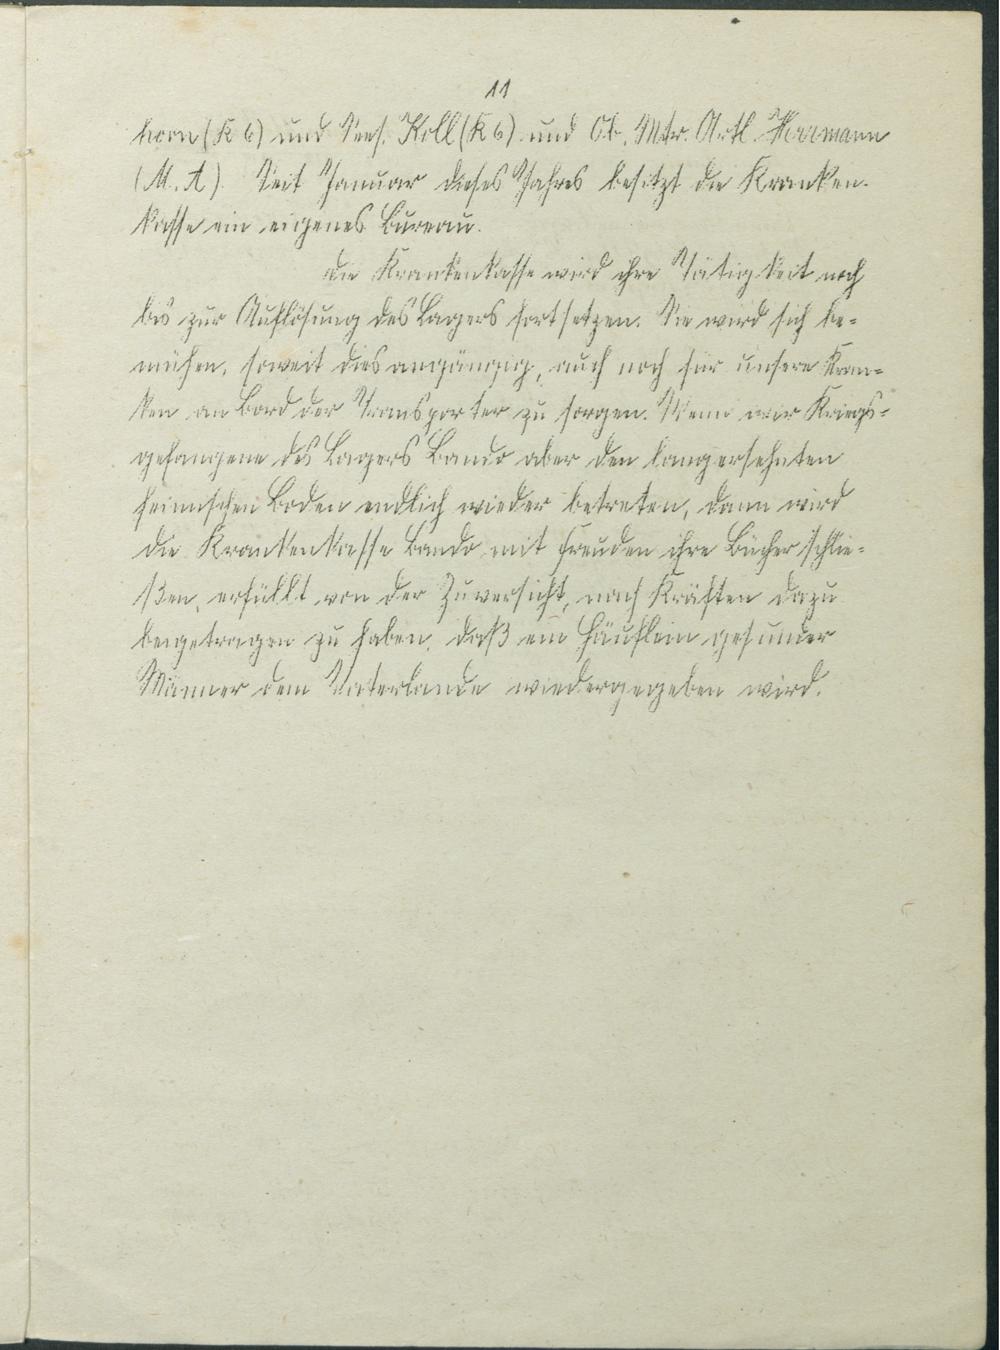 11
horn (K 6) und Sees. Koll (K 6) und Ob. Mtr. Artl. Hermann
(M. A.). Seit Januar dieses Jahres besitzt die Kranken-
kasse ein eigenes Bureau.
Die Krankenkasse wird ihre Tätigkeit noch
bis zur Auflösung des Lagers fortsetzen. Sie wird sich be-
mühen, soweit dies angängig, auch noch für unsere Kran-
ken an Bord der Transporter zu sorgen. Wenn wir Kriegs-
gefangene des Lagers Bando aber den langersehnten
heimischen Boden endlich wieder betreten, dann wird
die Krankenkasse Bando mit Freuden ihre Bücher schlie-
ßen, erfüllt von der Zuversicht, nach Kräften dazu
beigetragen zu haben, daß ein Häuflein gesunder
Männer dem Vaterlande wiedergegeben wird.